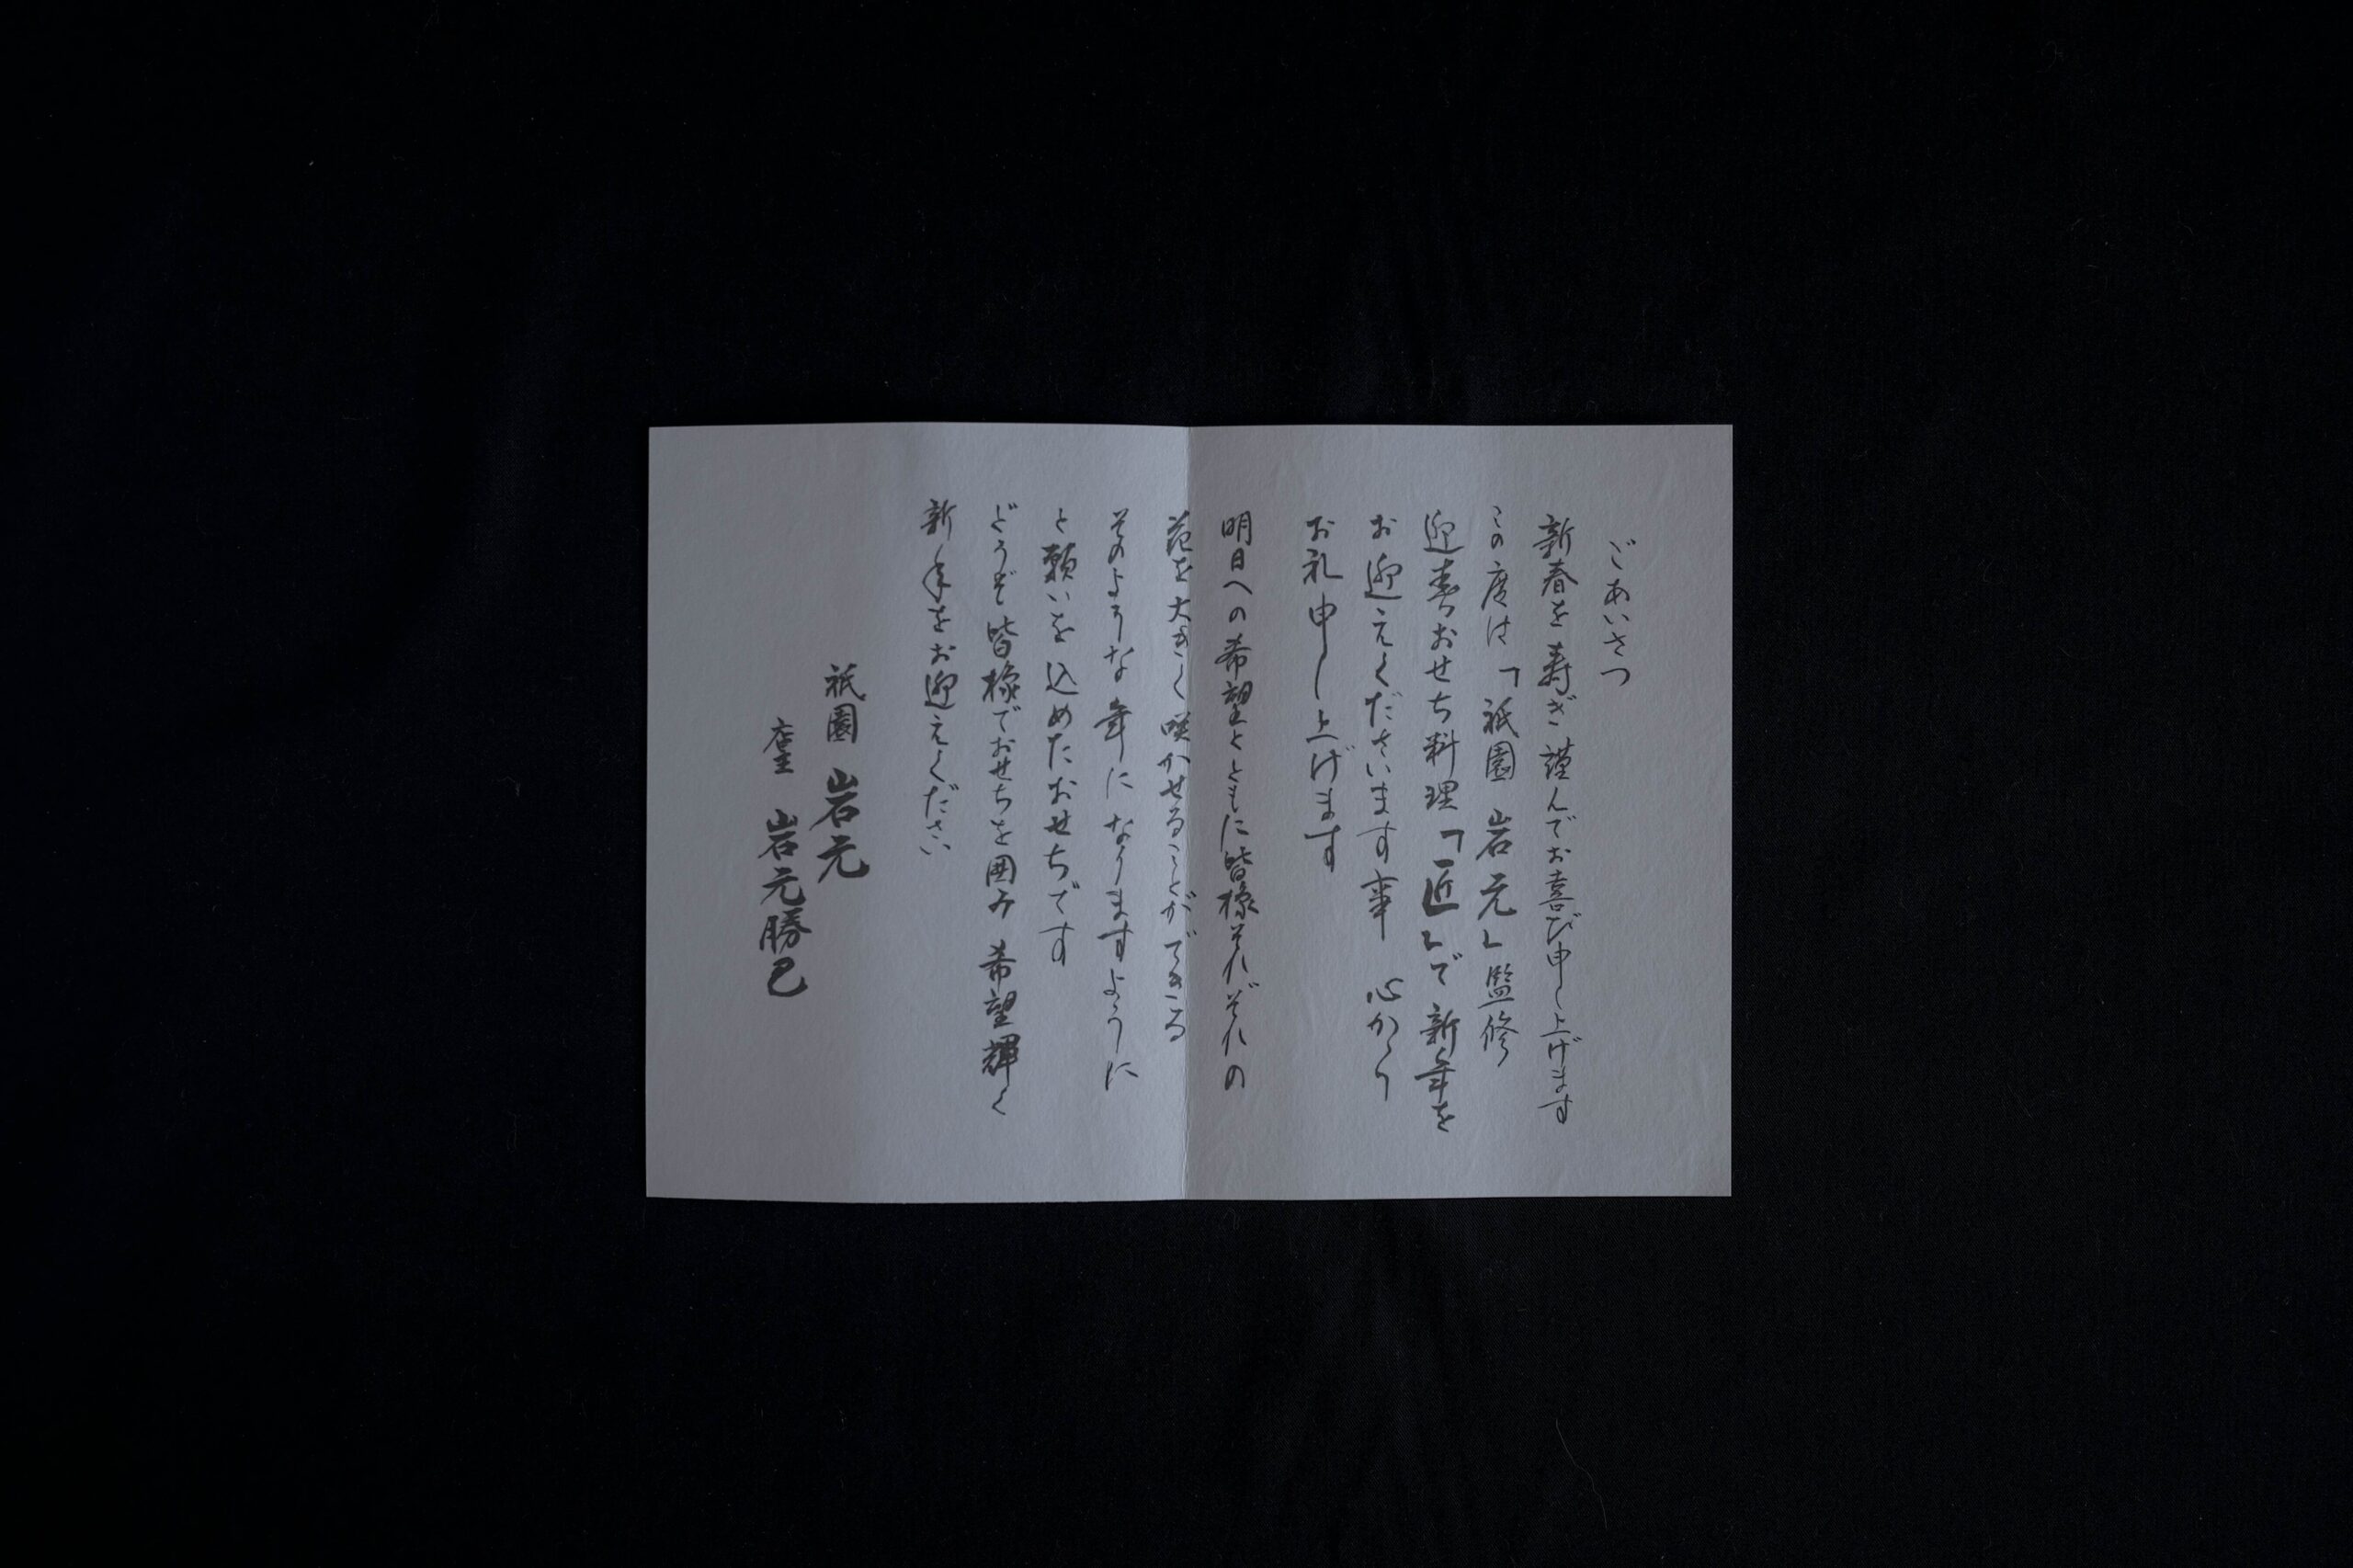 ごあいさつ
新春を寿ぎ謹んでお喜び申し上げます
この度は「祇園 岩元」監修
迎春おせち料理「匠」で新年を
お迎えくださいます事 心から
お礼申し上げます
明日への希望とともに皆様それぞれの
花を大きく咲かせることができる
そのような年になりますように
と願いを込めたおせちです
どうぞ皆様でおせちを囲み 希望輝く
新年をお迎えください
祇園 岩元
店主 岩元勝己